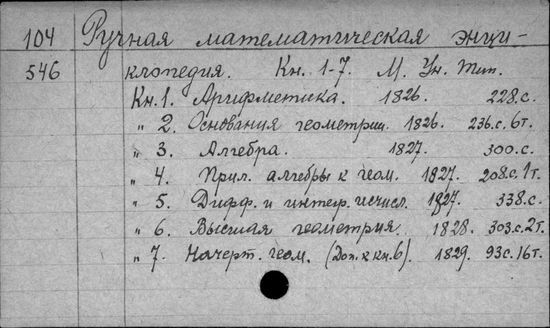 104 Ручная математическая энци-
546 клопедия. Кн. 1-7. М. Ун. тип.
Кн. 1. Арифметика. 1826. 228.с.
„ 2. Основания геометрии. 1826. 236.с. 6т.
„ 3. Алгебра. 1827. 300.с.
„ 4. Прил. алгебры к геом. 1827. 208.с. 1т.
„ 5. Дифф. и интегр. исчисл. 1827. 338.с.
„ 6. Высшая геометрия. 1828. 303.с. 2т.
„ 7. Начерт. геом. (Доп. к кн. 6). 1829. 93с. 16т.